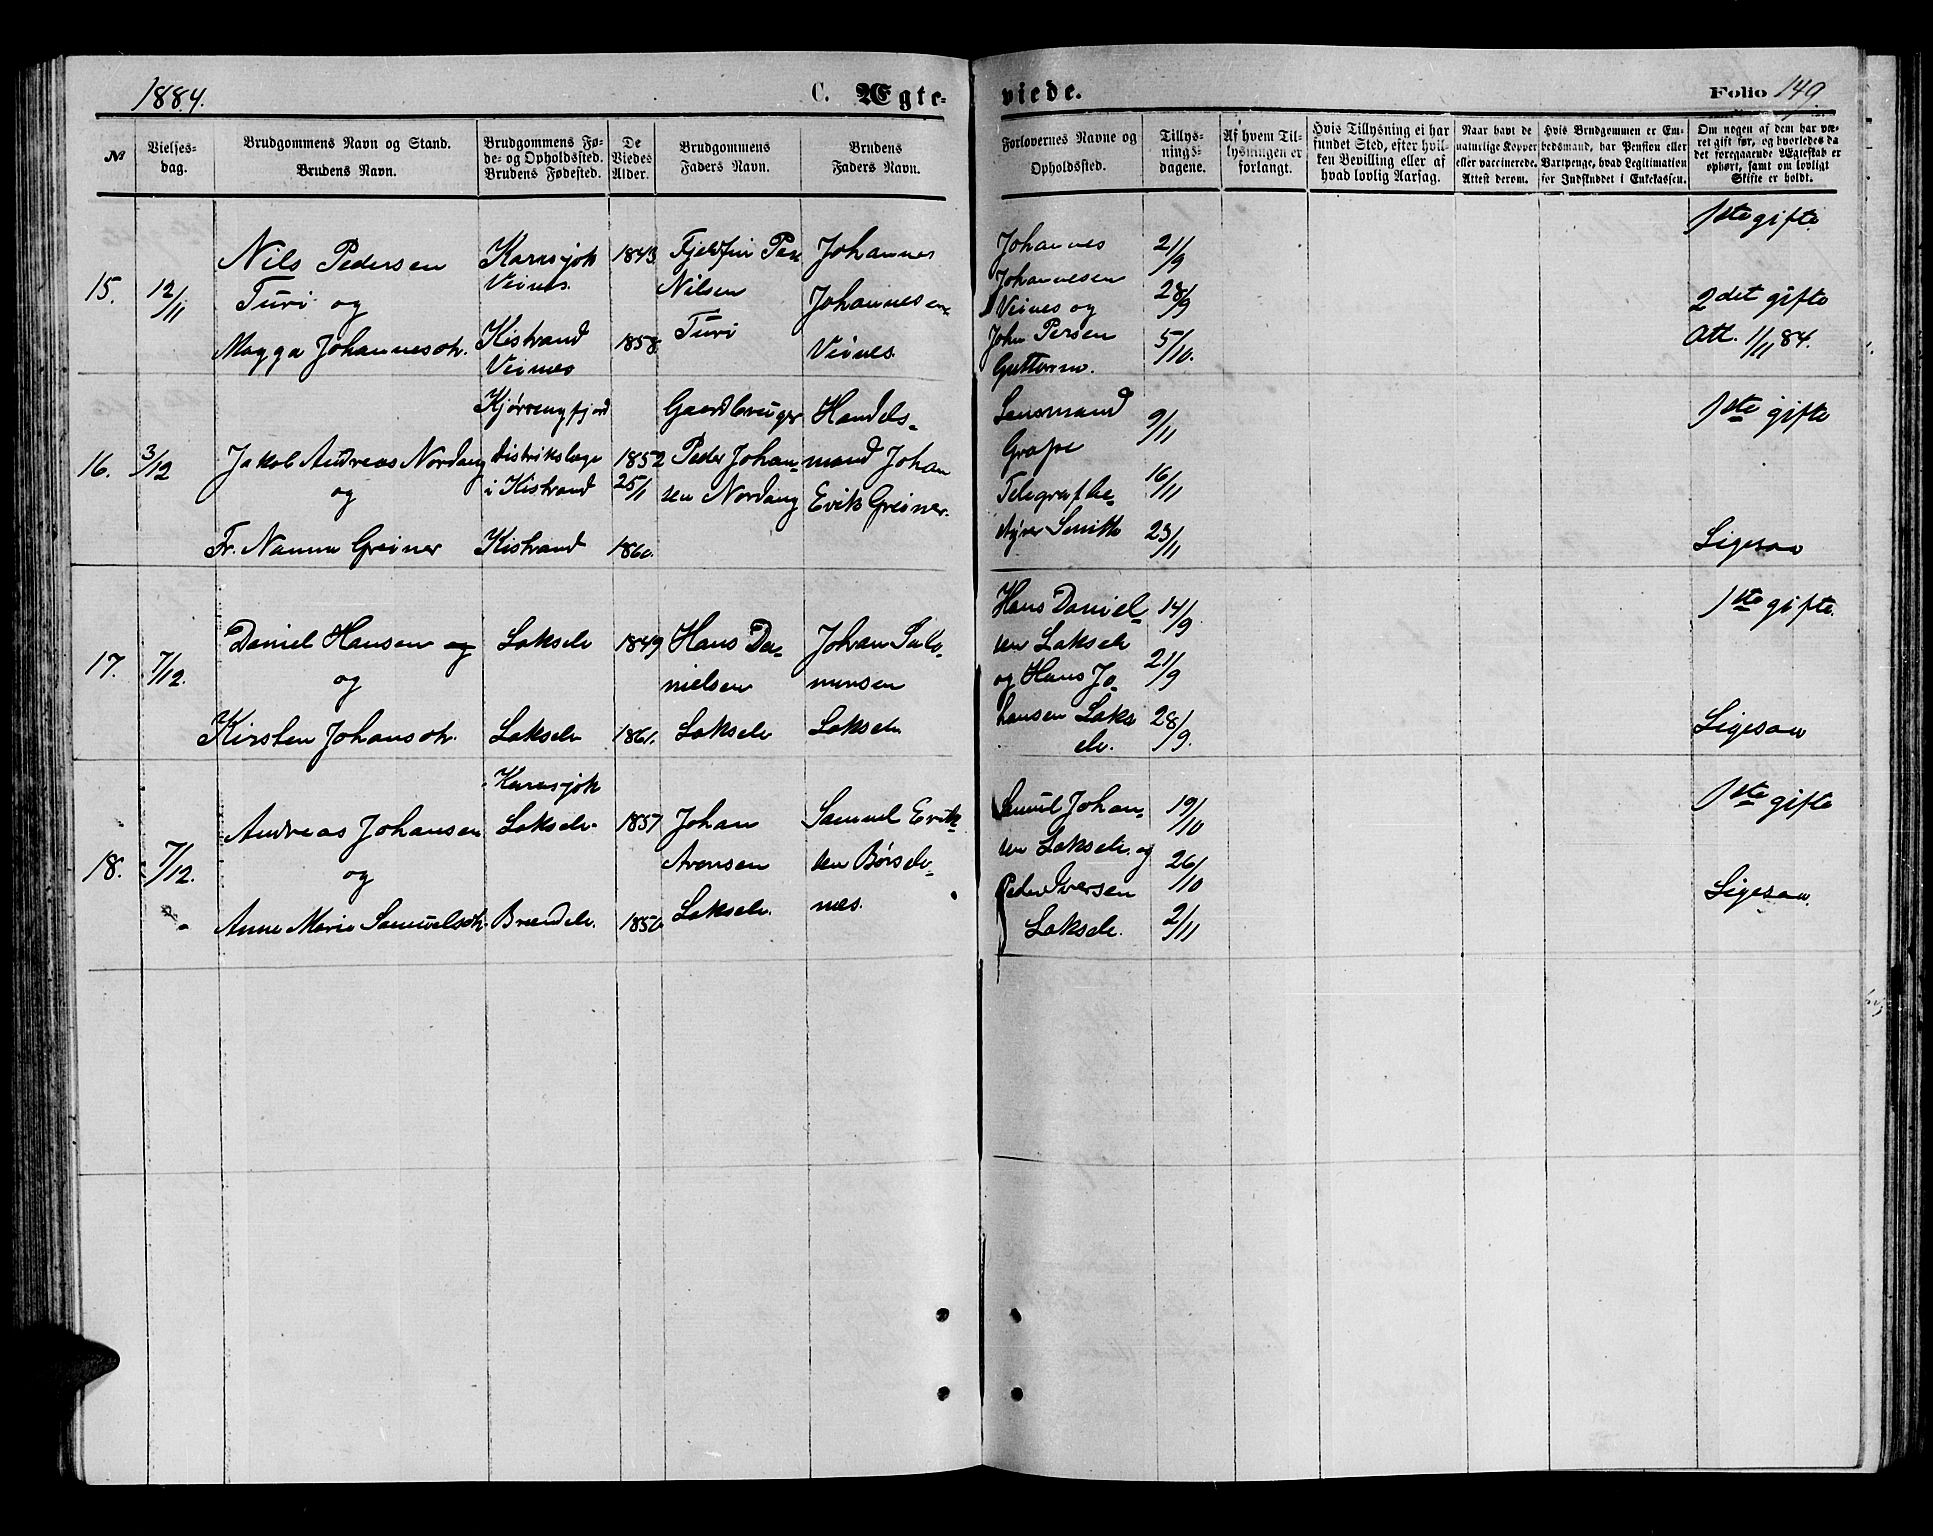 1884.
C. Ægte-
viede.
Folio 149.
№
Vielses-
dag.
Brudgommens Navn og Stand.
Brudens Navn.
Brudgommens Fø-
de- og Opholdssted.
Brudens Fødested.
De
Viedes
Alder.
Brudgommens
Faders Navn.
Brudens
Faders Navn.
Forlovernes Navne og
Opholdssted.
Tillys-
nings-
dagene.
Af hvem Til-
lysningen er
forlangt.
Hvis Tillysning ei har
fundet Sted, efter hvil-
ken Bevilling eller af
hvad lovlig Aarsag.
Naar havt de
naturlige Kopper
eller vaccinerede.
Attest derom.
Hvis Brudgommen er Em-
bedsmand, har Pension eller
Vartpenge, hvad Legitimation
for Indskuddet i Enkekassen.
Om nogen af dem har væ-
ret gift før, og hvorledes da
det foregaaende Ægteskab er
ophørt, samt om lovligt
Skifte er holdt.
15.
12/11
Nils Pedersen
Turi og
Magga Johannesdtr.
Karasjok
Veines.
Kistrand
Veines
1843
1858.
Fjeldfin Per
Nilsen
Turi
Johannes
Johannesen
Veines.
Johannes
Johannesen
Veines og
John Persen
Guttorm.
21/9
28/9
5/10.
1ste gifte
2det gifte
Att. 1/11 84.
16.
3/12
Jakob Andreas Nordang
og
Fr. Nanna Greiner
Distriktslæge
i Kistrand
Kistrand
1852
25/1
1860.
Gaardbruger
Peder Johan-
sen Nordang
Handels-
mand Johan
Erik Greiner.
Lensmand
Grape
Telegrafbe-
styrer Smith
9/11
16/11
23/11
1ste gifte
Ligesaa
17.
7/12.
Daniel Hansen og
og
Kirsten Johansdtr.
Lakselv
Lakselv
1849
1861.
Hans Da-
nielsen
Lakselv
Johan Salo-
monsen
Lakselv
Hans Daniel-
sen Lakselv
og Hans Jo-
hansen Laks
elv.
14/9
21/9
28/9.
1ste gifte.
Ligesaa
18.
7/12.
Andreas Johansen
og
Anne Marie Samuelsdtr.
Karasjok
Lakselv.
Brændelv.
1857
1850
Johan
Aronsen
Lakselv.
Samuel Erik-
sen Børselv-
nes.
Samuel Johan-
sen Lakselv. og
Peder Iversen
Lakselv.
19/10
26/10
2/11
1ste gifte
Ligesaa.